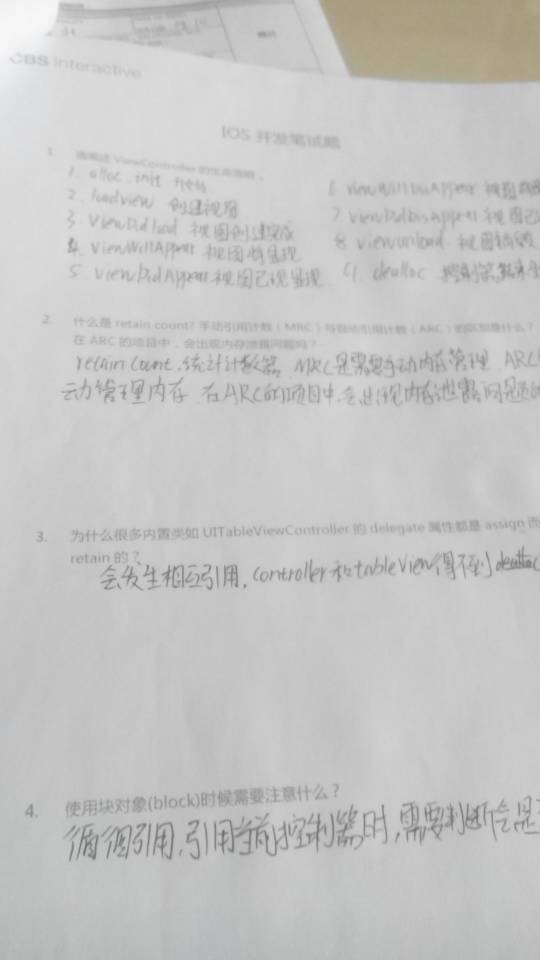 CBS Interactive
IOS 开发笔试题
1. 请阐述 ViewController 的生命周期。
1. alloc. init
2. loadview 创建视图
3 ViewDidload 视图创建完成
4. ViewWillAppear 视图将呈现
5 ViewDidAppear 视图已现呈现
6 viewWillDisAppear 视图
7. viewDidDisAppear 视图已
8 viewunload. 视图
9. dealloc 控制器
2. 什么是 retain count? 手动引用计数（MRC）与自动引用计数（ARC）的区别是什么？
在 ARC 的项目中，会出现内存泄漏问题吗？
retain count. 统计计数器. MRC是需要手动内存管理. ARC
动管理内存. 在ARC的项目中.会出现内存泄露问题的
3. 为什么很多内置类如 UITableViewController 的 delegate 属性都是 assign 而
retain 的？
会发生相互引用, controller和tableView得不到dealloc
4. 使用块对象(block)时候需要注意什么？
循环引用, 引用当前控制器时, 需要判断它是